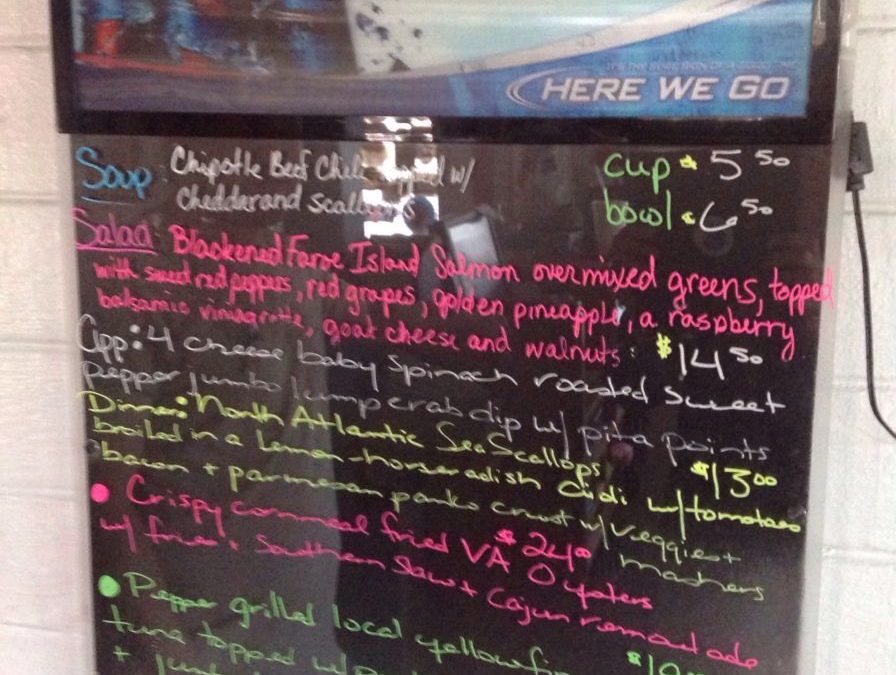 HERE WE GO
Soup: Chipotle Beef Chili topped w/ cup 5 50
Cheddar and scallions bowl 6 50
Salad: Blackened Faroe Island Salmon over mixed greens, topped
with sweet red peppers, red grapes, golden pineapple, a raspberry
balsamic vinaigrette, goat cheese and walnuts: $14 50
App: 4 cheese baby spinach roasted sweet
pepper jumbo lump crab dip w/ pita points
$13 00
Dinner: North Atlantic Sea Scallops
broiled in a Lemon-horseradish w/ tomatoes
bacon + parmesan panko crust w/ veggies +
mashers
$24 00
• Crispy cornmeal fried VA Oysters
w/ fries + Southern Slaw + Cajun remoulade
• Pepper grilled local yellowfin
tuna topped w/
+